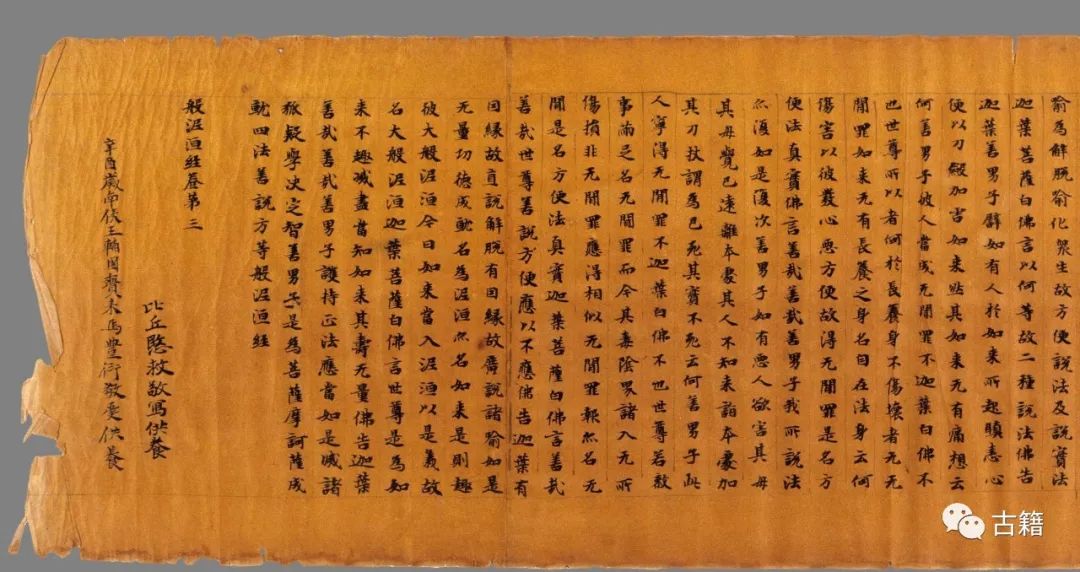 喻為解脱喻化衆生故方便說法及說實法
迦葉菩薩白佛言以何等故二種說法佛告
迦葉善男子譬如有人於如来所起瞋恚心
便以刀 加害如来 其如来无有痛想云
何善男子彼人當成无間罪不迦葉白佛不
也世尊所以者何於長養身不傷壞者无无
間罪如来无有長養之身名自在法身云何
傷害以彼發心惡方便故得无間罪是名方
便法真實佛言善哉善哉善男子我所說法
亦復如是復次善男子如有惡人欲害其母
其母覺已遠離本處其人不知来詣本處加
其刀杖謂為已死其實不死云何善男子此
人寧得无間罪不迦葉白佛不也世尊若煞
事滿足名无間罪而今其毒陰界諸入无所
傷損非无間罪應得相似无間罪報亦名无
間是名方便法真實迦葉菩薩白佛言善哉
善哉世尊善說方便應以不應佛告迦葉有
因緣故直說解脱有因緣故廣說諸喻如是
无量功德成就名為泥洹亦名如来是則趣
彼大般泥洹今日如来當入泥洹以是義故
名大般泥洹迦葉菩薩白佛言世尊是為如
来不趣滅盡當知如来其壽无量佛告迦葉
善哉善哉善男子護持正法應當如是滅諸
狐疑學決定智善男子是為菩薩摩訶薩成
就四法善說方等般泥洹經
般泥洹經卷第三
比丘愍救敬寫供養
辛酉歲 齊 馬豐衍敬 供養
古籍